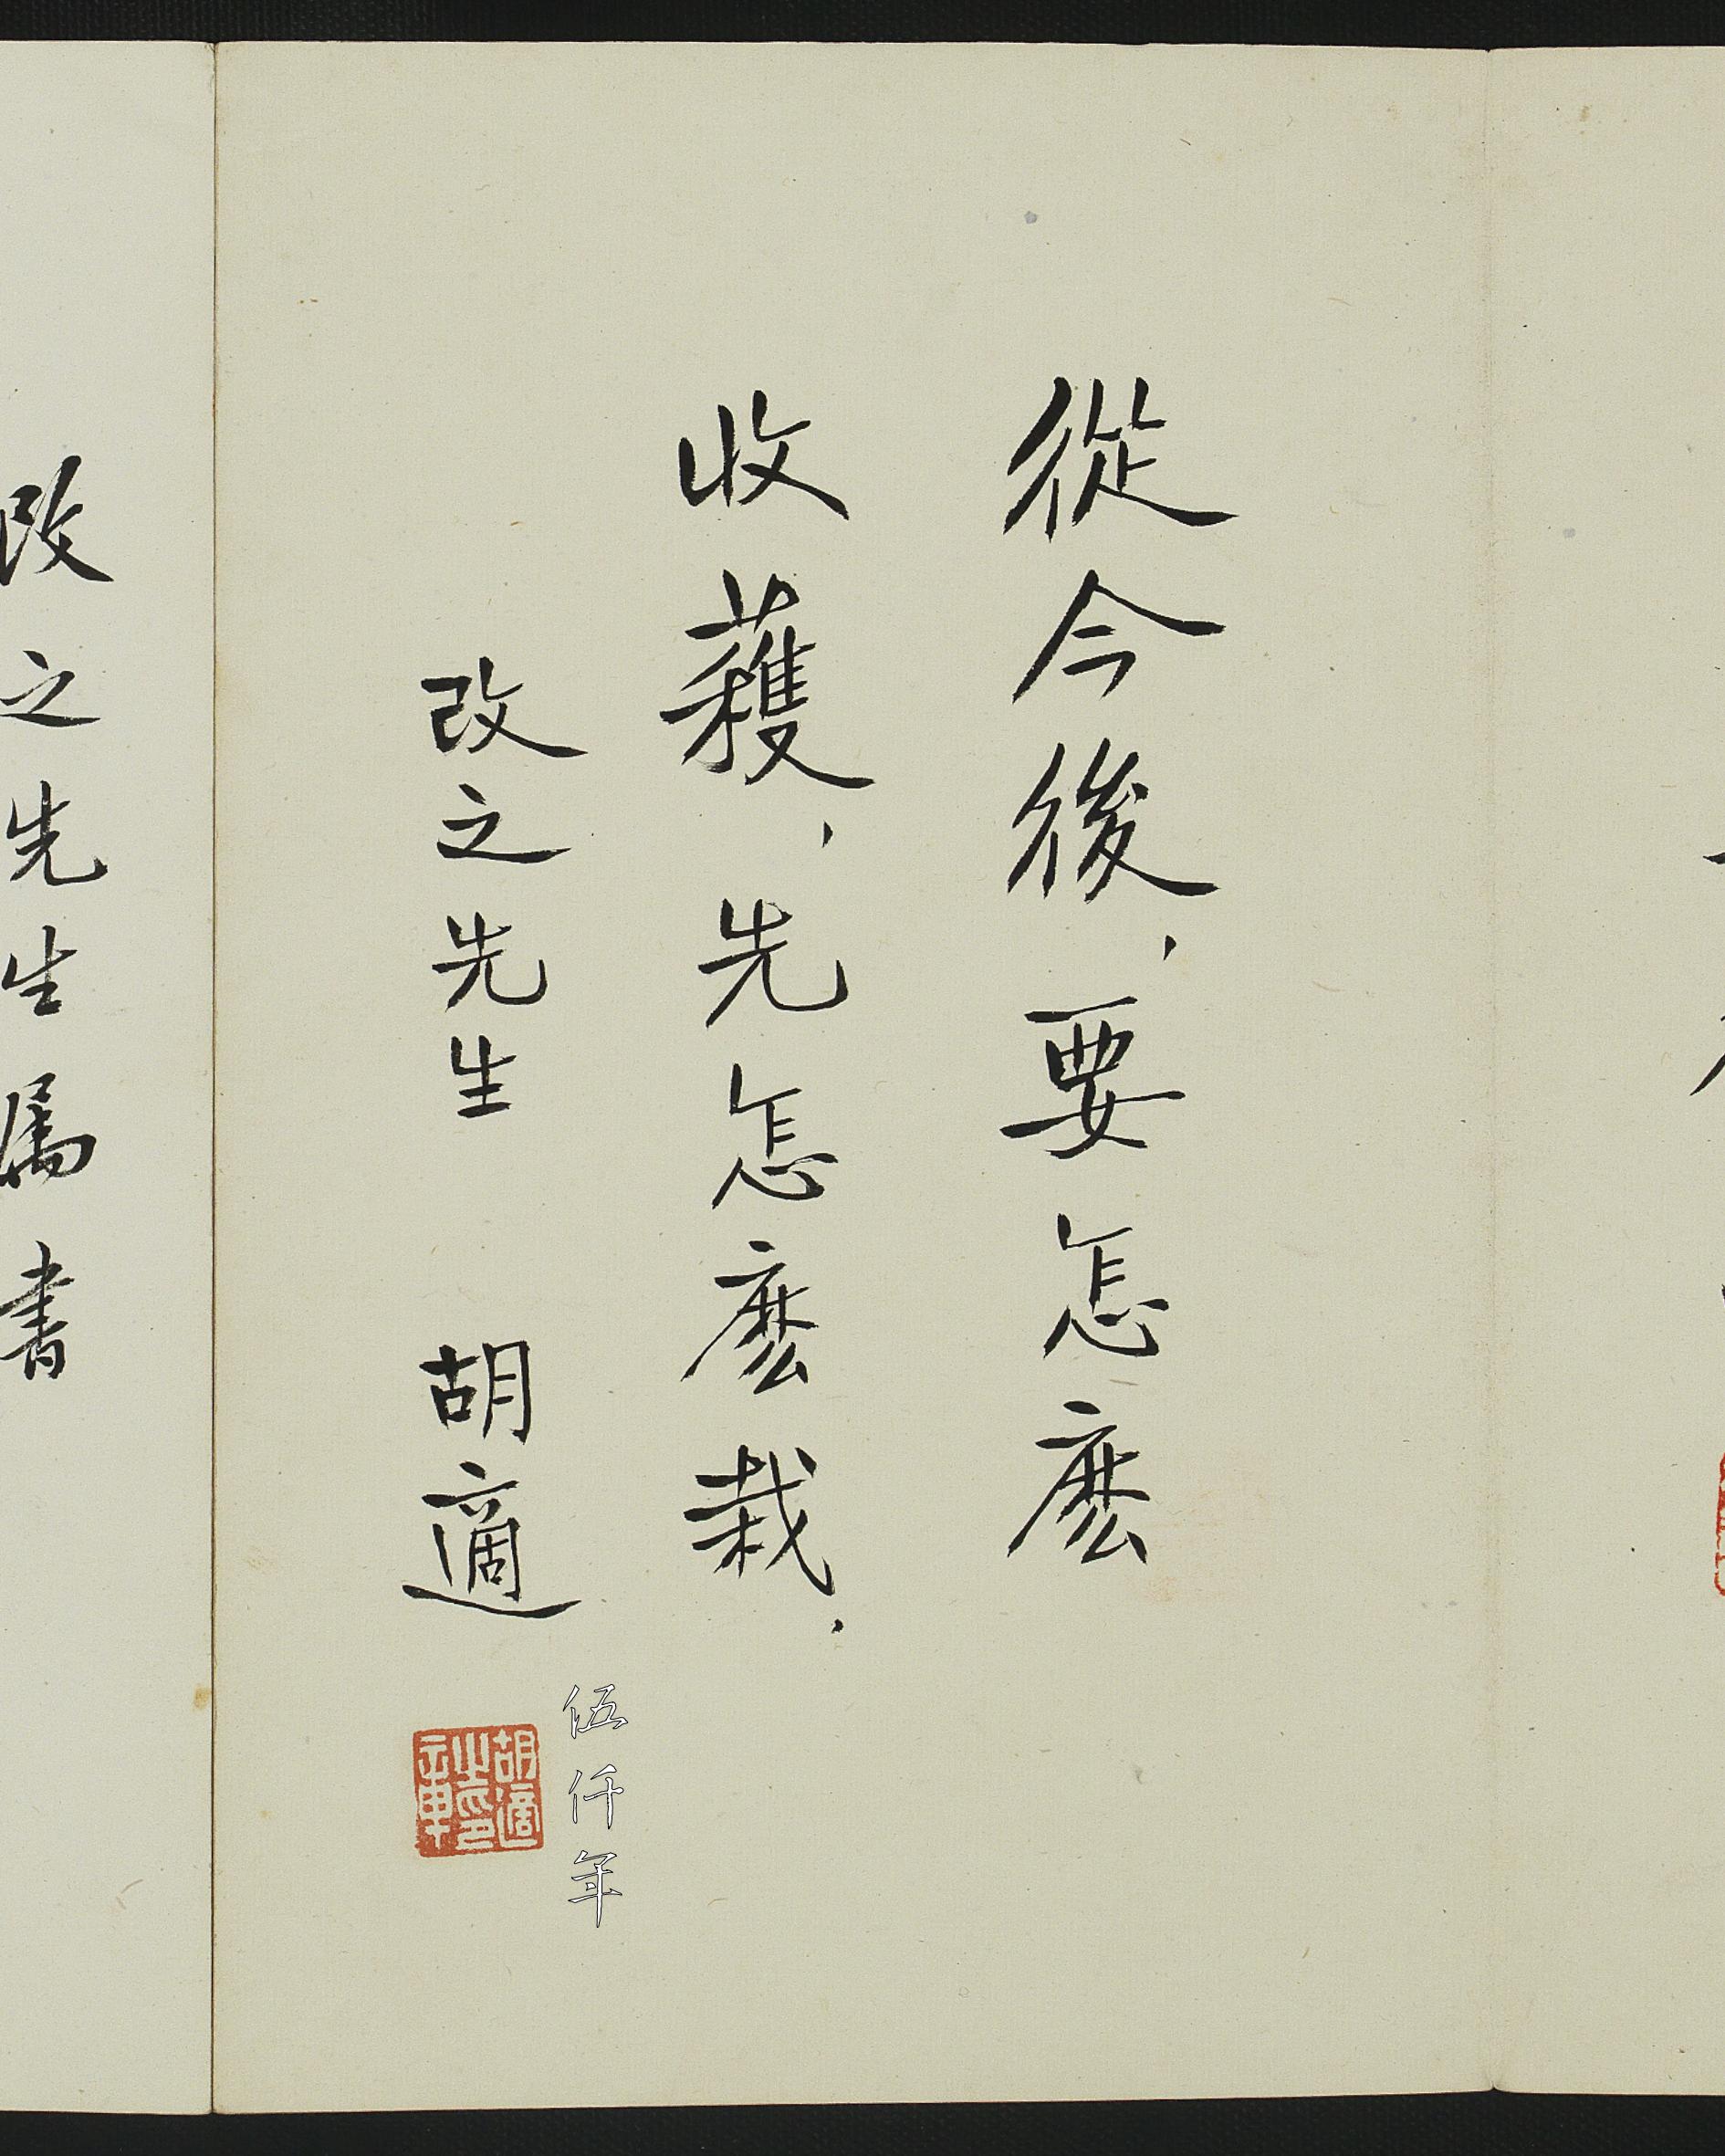 從今後，要怎麽
收穫，先怎麽栽．
改之先生 胡適
胡適之印鉨
伍仟年
改之先生屬書